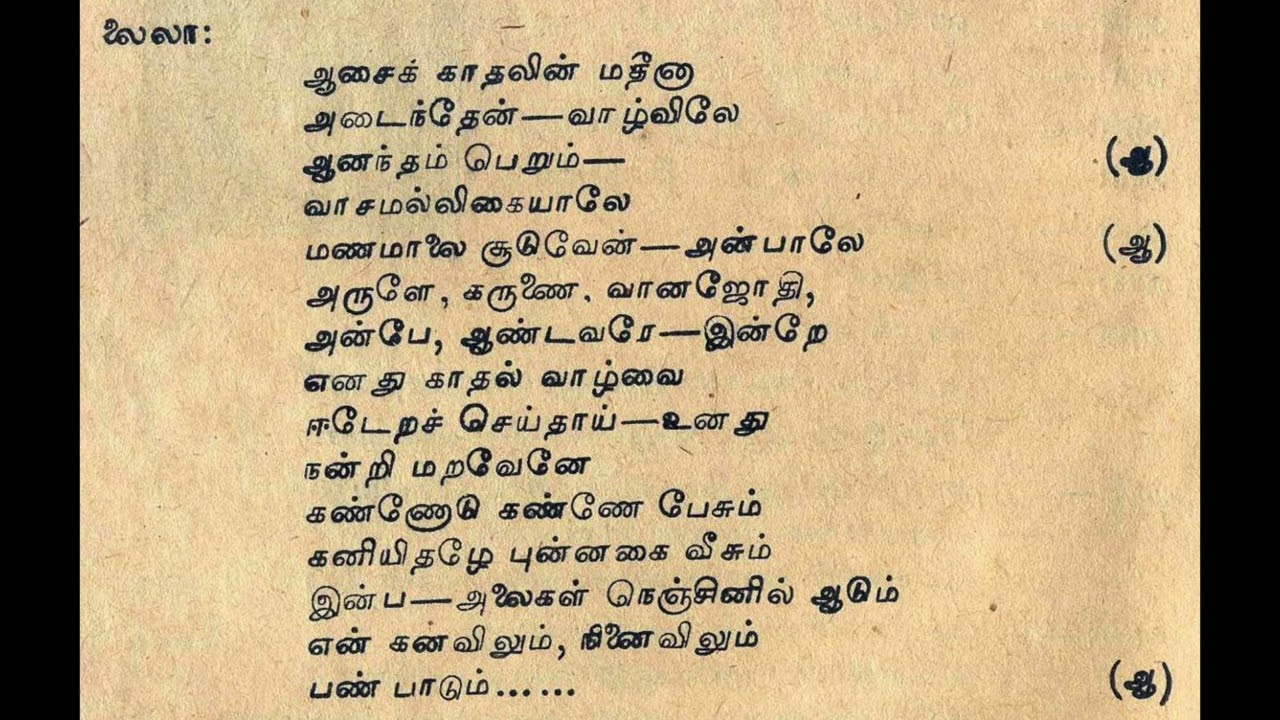 லைலா:
ஆசைக் காதலின் மதீனா
அடைந்தேன்—வாழ்விலே
ஆனந்தம் பெறும்— (ஆ)
வாசமல்லிகையாலே
மணமாலை சூடுவேன்—அன்பாலே (ஆ)
அருளே, கருணை. வானஜோதி,
அன்பே, ஆண்டவரே—இன்றே
எனது காதல் வாழ்வை
ஈடேறச் செய்தாய்—உனது
நன்றி மறவேனே
கண்ணோடு கண்ணே பேசும்
கனியிதழே புன்னகை வீசும்
இன்ப—அலைகள் நெஞ்சினில் ஆடும்
என் கனவிலும், நினைவிலும்
பண் பாடும்...... (ஆ)